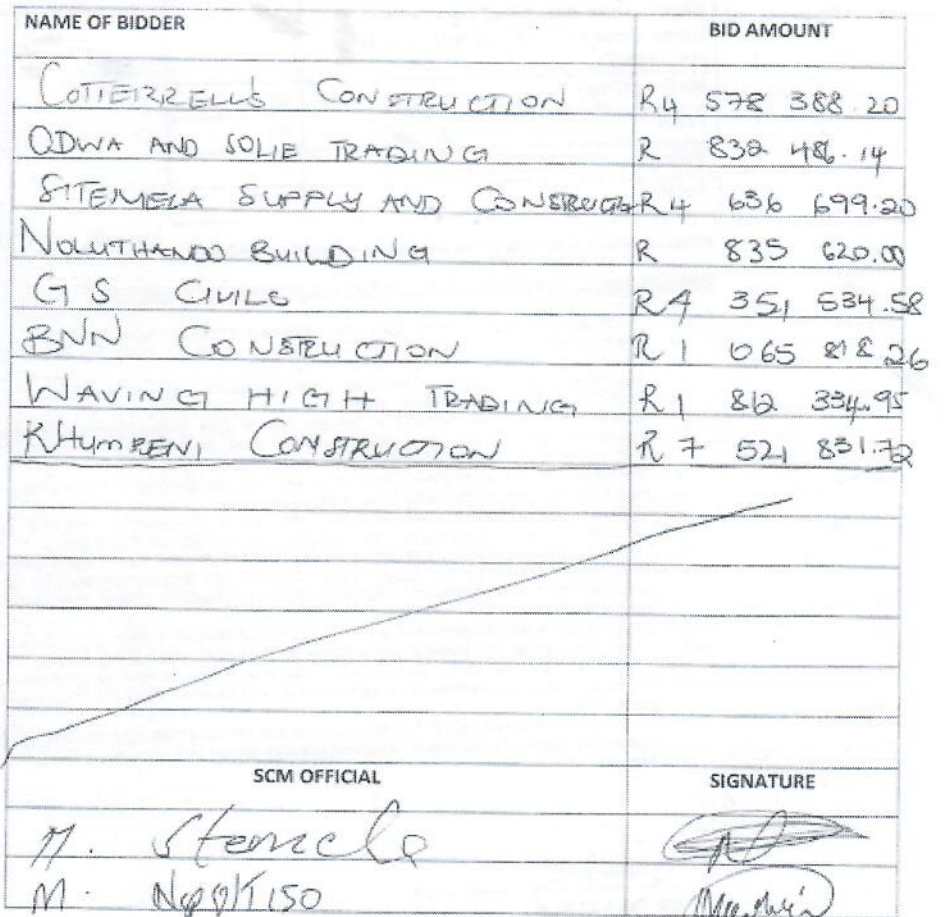 NAME OF BIDDER BID AMOUNT
COTTERRELL'S CONSTRUCTION R4 578 388.20
ODWA AND SOLIE TRADING R 832 486.14
SITEMELA SUPPLY AND CONSTRUCT R4 636 699.20
NOLUTHANDO BUILDING R 835 620.00
G S CIVILS R4 351 534.58
BNN CONSTRUCTION R1 065 818.26
WAVING HIGH TRADING R1 812 334.95
KHUMBENI CONSTRUCTION R7 521 831.72
SCM OFFICIAL SIGNATURE
M.
M.